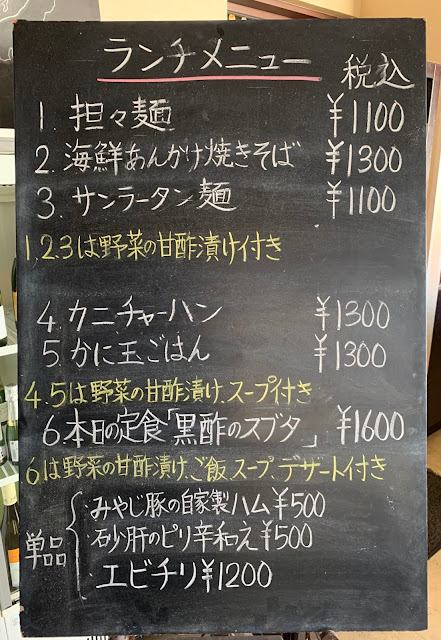 ランチメニュー
税込
1. 担々麺 ¥1100
2. 海鮮あんかけ焼きそば ¥1300
3. サンラータン麺 ¥1100
1.2.3は野菜の甘酢漬け付き
4. カニチャーハン ¥1300
5. かに玉ごはん ¥1300
4.5は野菜の甘酢漬け、スープ付き
6 本日の定食「黒酢のスブタ」 ¥1600
6は野菜の甘酢漬け、ご飯、スープ、デザート付き
単品
・みやじ豚の自家製ハム ¥500
・砂肝のピリ辛和え ¥500
・エビチリ ¥1200